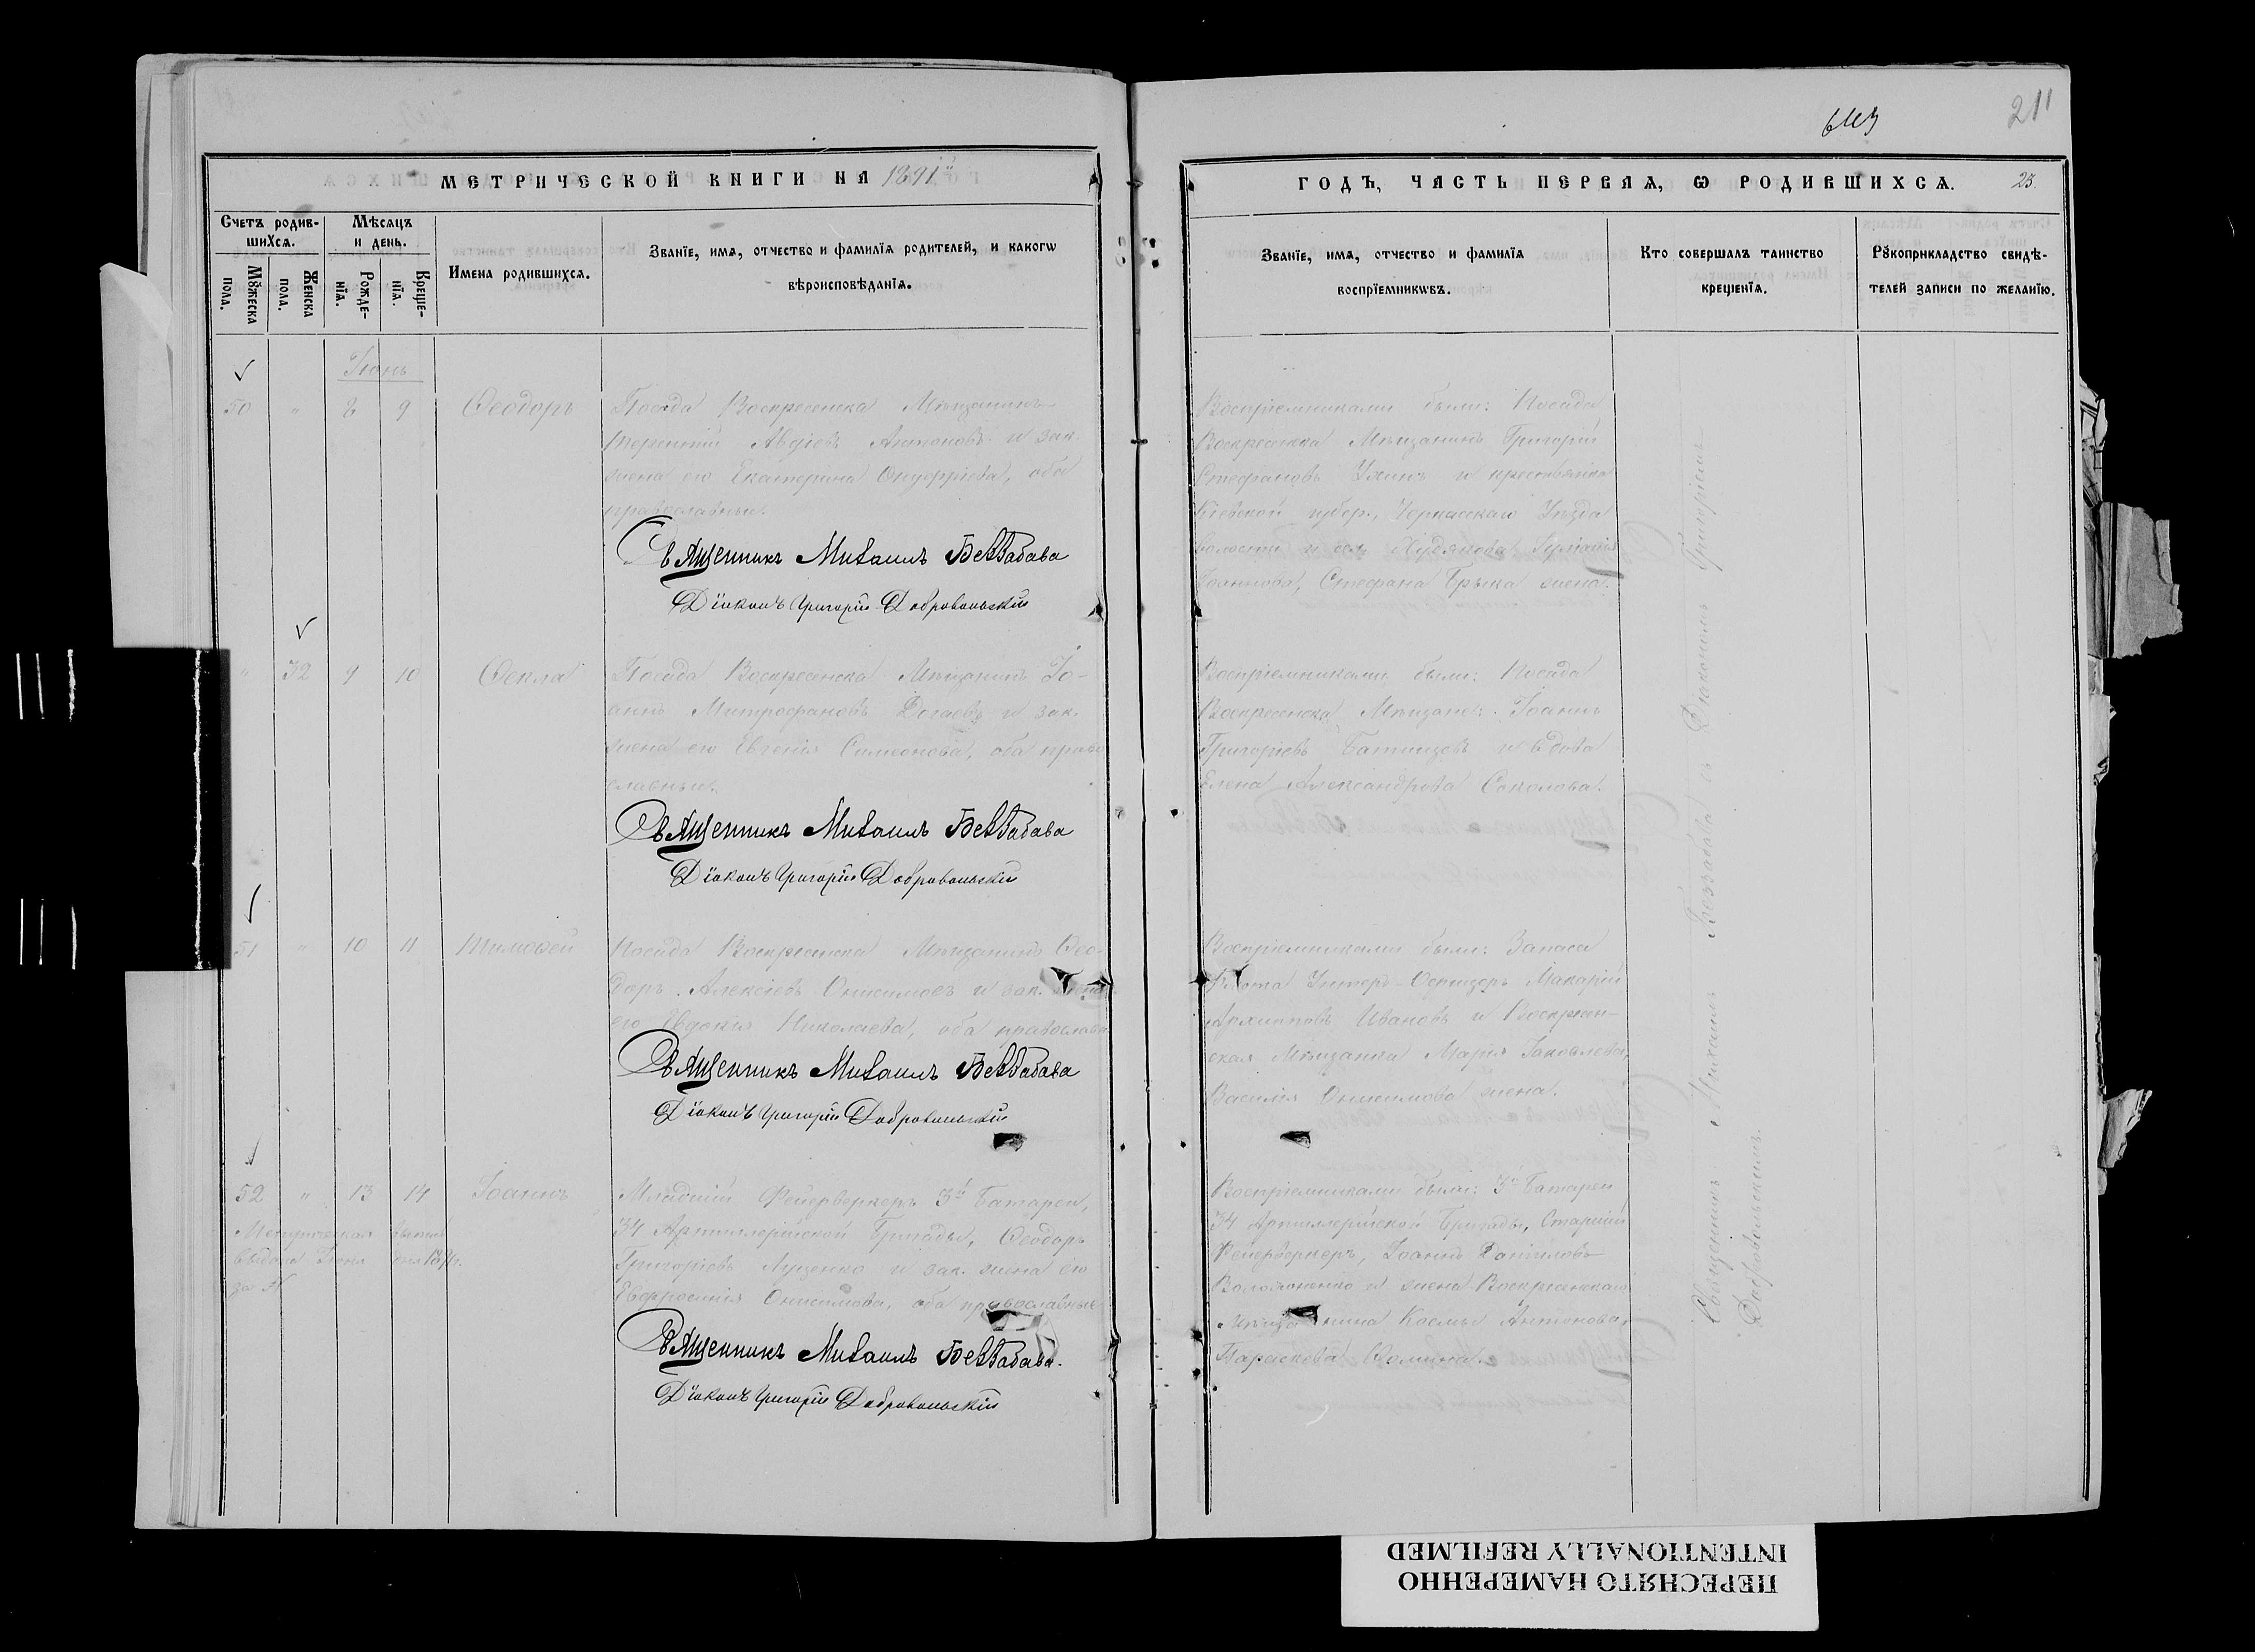 211
МЕТРИЧЕСКОЙ КНИГИ НА 1891й
ГОДЪ, ЧАСТЬ ПЕРВАЯ, Ѡ РОДИВШИХСѦ. 25.
Счетъ родив-
шихсѧ.
Мѣсѧцъ
и день.
Мꙋжеска
пола.
Женска
пола.
Рожде-
нїѧ.
Креще-
нїѧ.
Имена родившихсѧ.
Званїе, имѧ, отчество и фамилїѧ родителей, и какогѡ
вѣроисповѣданїѧ.
Званїе, имѧ, отчество и фамилїѧ
воспрїемникѡвъ.
Кто совершалъ таинство
крещенїѧ.
Рꙋкоприкладство свидѣ-
телей записи по желанїю.
Іюнь
50 " 8 9 Ѳеодоръ
Посада Воскресенска Мѣщанинъ
Терентій Авдіевъ Антоновъ и зак.
жена его Екатерина Онуфріева, оба
православные.
Священникъ Михаилъ Беззабава
Діаконъ Григорій Добровольскій
Воспріемниками были: Посада
Воскресенска Мѣщанинъ Григорій
Стефановъ и крестьянка
Кіевской губер., Черкасскаго Уѣзда
волости и села Худякова
Іоаннова, Стефана жена.
" 32 9 10 Ѳекла
Посада Воскресенска Мѣщанинъ Іо-
аннъ Митрофановъ и зак.
жена его Евгенія Симеонова, оба право
славные.
Священникъ Михаилъ Беззабава
Діаконъ Григорій Добровольскій
Воспріемниками были: Посада
Воскресенска Мѣщане: Іоаннъ
Григоріевъ Батищевъ и вдова
Елена Александрова Соколова.
51 " 10 11 Тимоѳей
Посада Воскресенска Мѣщанинъ Ѳео-
доръ Алексіевъ Онисимовъ и зак. жена
его Евдокія Николаева, оба православн.
Священникъ Михаилъ Беззабава
Діаконъ Григорій Добровольскій
Воспріемниками были: Запаса
Флота Унтеръ-Офицеръ Макарій
Архиповъ Ивановъ и Воскресен-
ская Мѣщанка Марія Іаковлева,
Василія Онисимова жена.
52 " 13 14 Іоаннъ
Метрическая выпись
выдана Іюня дня 1891г.
за №
Младшій Фейерверкеръ 3й Батареи,
34 Артиллерійской Бригады, Ѳеодоръ
Григоріевъ Луценко и зак. жена его
Евфросинія Онисимова, оба православные
Священникъ Михаилъ Беззабава.
Діаконъ Григорій Добровольскій
Воспріемниками были: 3й Батареи
34 Артиллерійской Бригады, Старшій
Фейерверкеръ, Іоаннъ Даніиловъ
и жена Воскресенскаго
Мѣщанина Космы Антонова,
Параскева Ѳомина.
Священникъ Михаилъ Беззабава съ Діакономъ Григоріемъ
Добровольскимъ.
ПЕРЕСНЯТО НАМЕРЕННО
INTENTIONALLY REFILMED